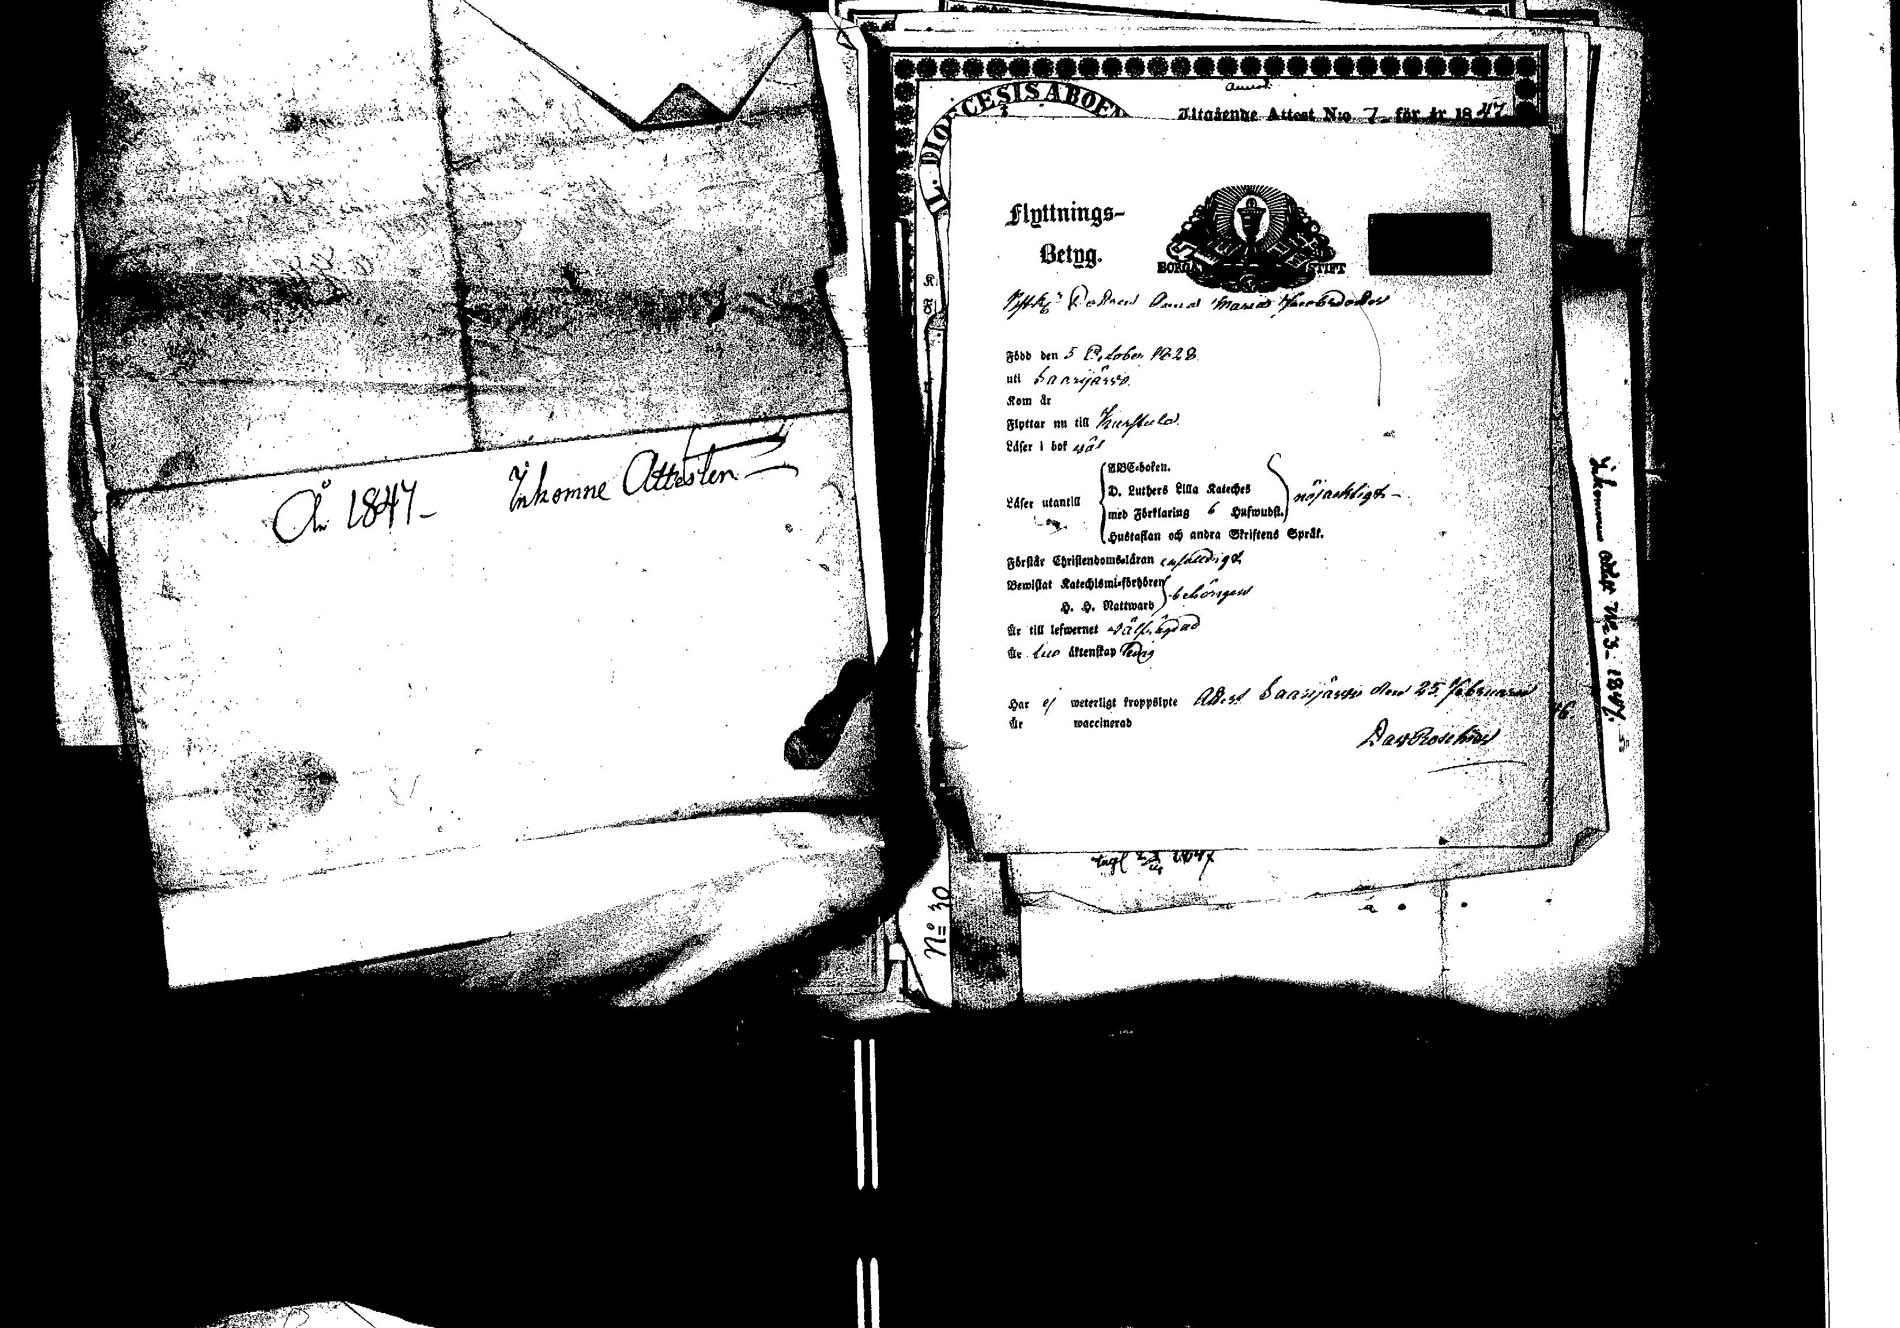 År 1847 –
Inkomne Attester. –
L. DIOECESIS ABOEN
Utgående Attest N:o 7 för år 1847
Flyttnings-
Betyg.
BORGÅ STIFT
Anna Maria
Född den 5 October 1828
uti Saarijärvi
Kom år
Flyttar nu till
Läser i bok väl
Läser utantill
ABC-boken.
D. Luthers Lilla Kateches
med Förklaring 6 Hufwudst.
Hustaflan och andra Skriftens Språk.
nöjaktligt –
Förstår Christendomsläran enfaldigt
Bewistat Katechismi-förhören
H. H. Nattward
behörigen
Är till lefwernet välfrejdad
Är till äktenskap ledig
Har ej weterligt kroppslyte Attest. Saarijärvi den 25 Februarii
Är waccinerad
Inkommen Attest No 3 – 1847.
1847
No 30